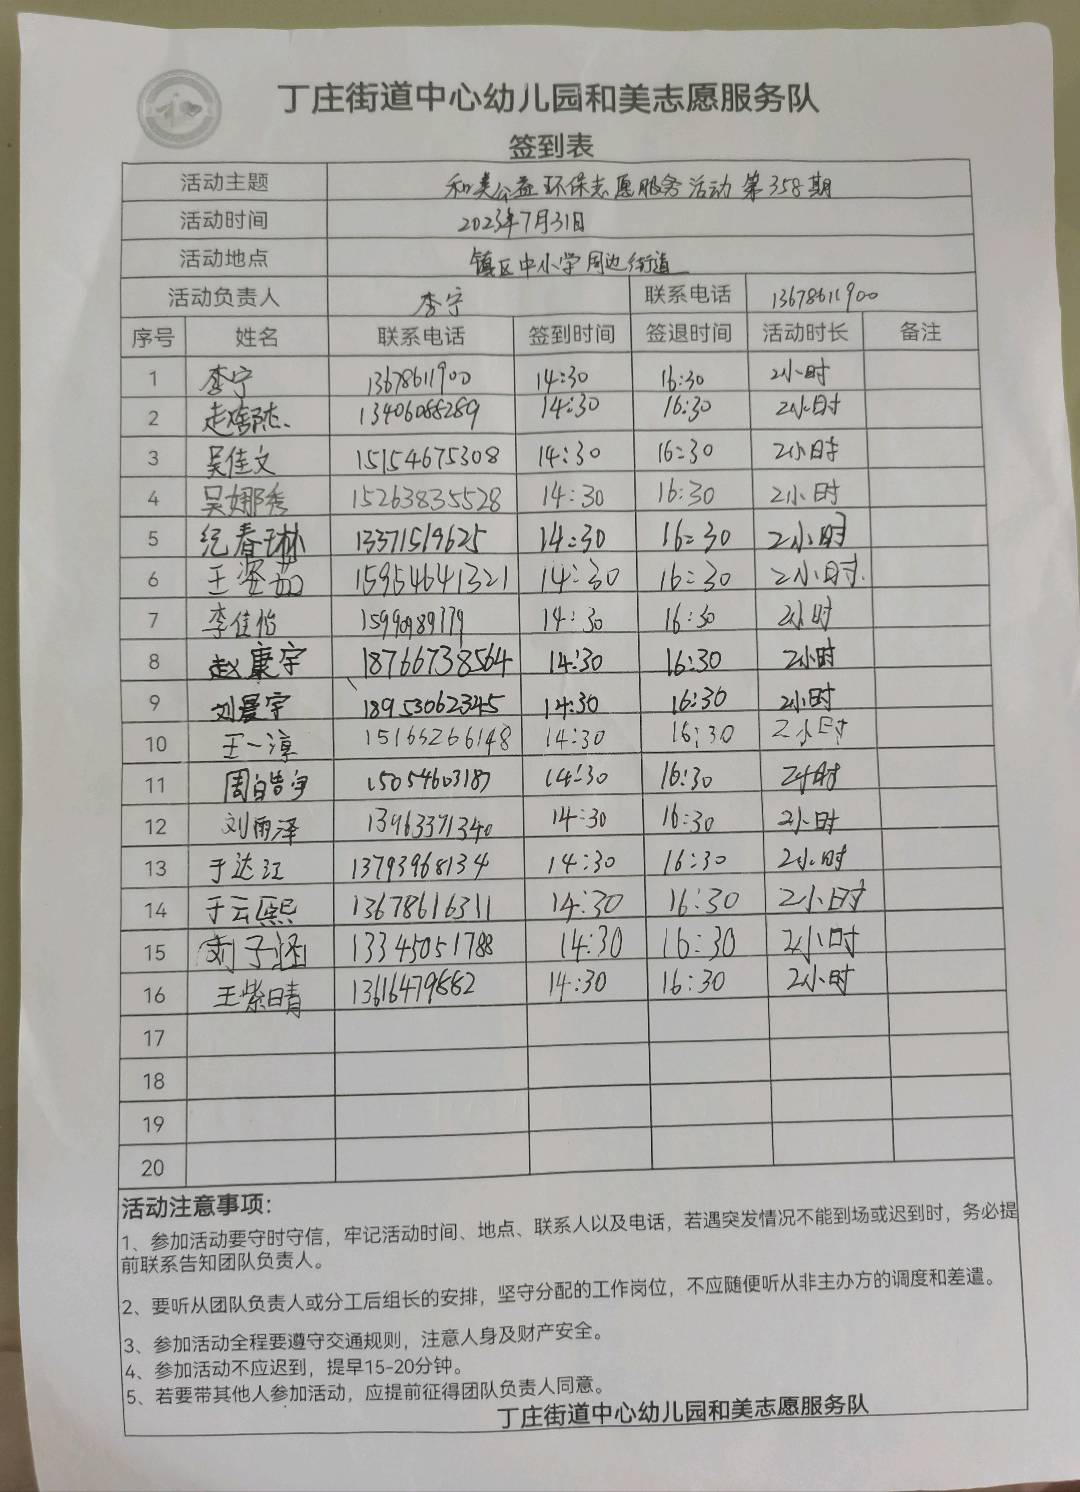 丁庄街道中心幼儿园和美志愿服务队
签到表
活动主题 和美公益环保志愿服务活动第358期
活动时间 2023年7月31日
活动地点 镇区中小学周边街道
活动负责人 李宁 联系电话 13678611900
序号 姓名 联系电话 签到时间 签退时间 活动时长 备注
1 李宁 13678611900 14:30 16:30 2小时
2 13406088289 14:30 16:30 2小时
3 吴佳文 15154675308 14:30 16:30 2小时
4 吴娜秀 15263835528 14:30 16:30 2小时
5 纪春琳 13371519625 14:30 16:30 2小时
6 王姿茹 15954641321 14:30 16:30 2小时.
7 李佳怡 14:30 16:30 2小时
8 赵康宇 18766738564 14:30 16:30 2小时
9 刘晨宇 18953062345 14:30 16:30 2小时
10 王一淳 15165266148 14:30 16:30 2小时
11 周皓宇 15054603187 14:30 16:30 2小时
12 刘雨泽 13963371340 14:30 16:30 2小时
13 于达江 13793968134 14:30 16:30 2小时
14 于云熙 13678616311 14:30 16:30 2小时
15 刘子涵 13345051788 14:30 16:30 2小时
16 王紫晴 13616479882 14:30 16:30 2小时
17
18
19
20
活动注意事项：
1、参加活动要守时守信，牢记活动时间、地点、联系人以及电话，若遇突发情况不能到场或迟到时，务必提
前联系告知团队负责人。
2、要听从团队负责人或分工后组长的安排，坚守分配的工作岗位，不应随便听从非主办方的调度和差遣。
3、参加活动全程要遵守交通规则，注意人身及财产安全。
4、参加活动不应迟到，提早15-20分钟。
5、若要带其他人参加活动，应提前征得团队负责人同意。
丁庄街道中心幼儿园和美志愿服务队